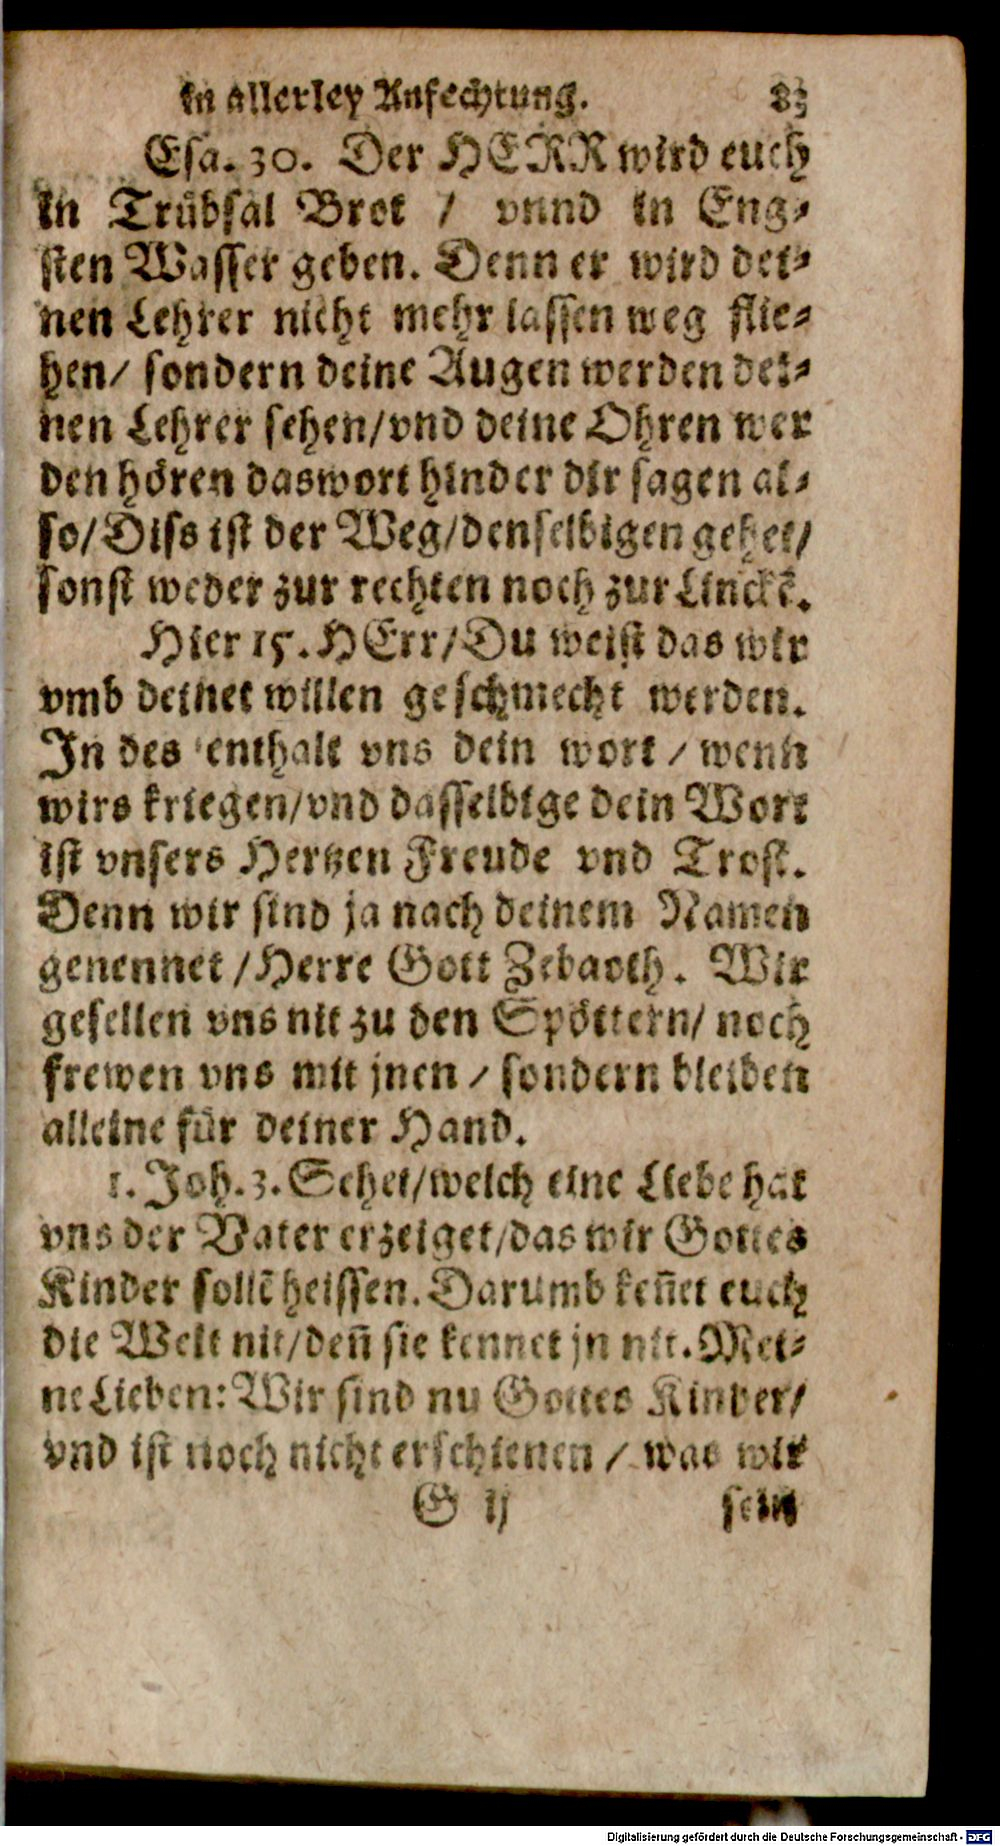 in allerley Anfechtung. 83
Esa. 30. Der HERR wird euch
in Trübsal Brot / vnnd in Eng-
sten Wasser geben. Denn er wird dei-
nen Lehrer nicht mehr lassen weg flie-
hen/ sondern deine Augen werden dei-
nen Lehrer sehen/vnd deine Ohren wer
den hören daswort hinder dir sagen al-
so/Diss ist der Weg/denselbigen gehet/
sonst weder zur rechten noch zur Linckē.
Hier 15. HErr/Du weist das wir
vmb deinet willen geschmecht werden.
In des enthalt vns dein wort / wenn
wirs kriegen/vnd dasselbige dein Wort
ist vnsers Hertzen Freude vnd Trost.
Denn wir sind ja nach deinem Namen
genennet /Herre Gott Zebaoth. Wir
gesellen vns nit zu den Spöttern/ noch
frewen vns mit jnen / sondern bleiben
alleine für deiner Hand.
1. Joh. 3. Sehet/welch eine Liebe hat
vns der Vater erzeiget/das wir Gottes
Kinder sollē heissen. Darumb keñet euch
die Welt nit/deñ sie kennet jn nit. Mei-
ne Lieben: Wir sind nu Gottes Kinder/
vnd ist noch nicht erschienen / was wir
G ij sein
Digitalisierung gefördert durch die Deutsche Forschungsgemeinschaft - DFG